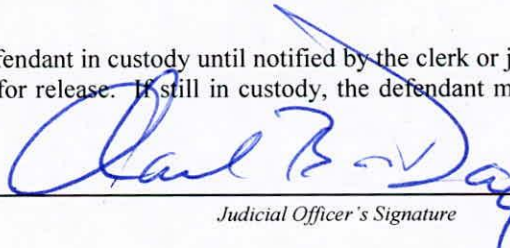 fendant in custody until notified by the clerk or j
for release. If still in custody, the defendant m
Judicial Officer's Signature